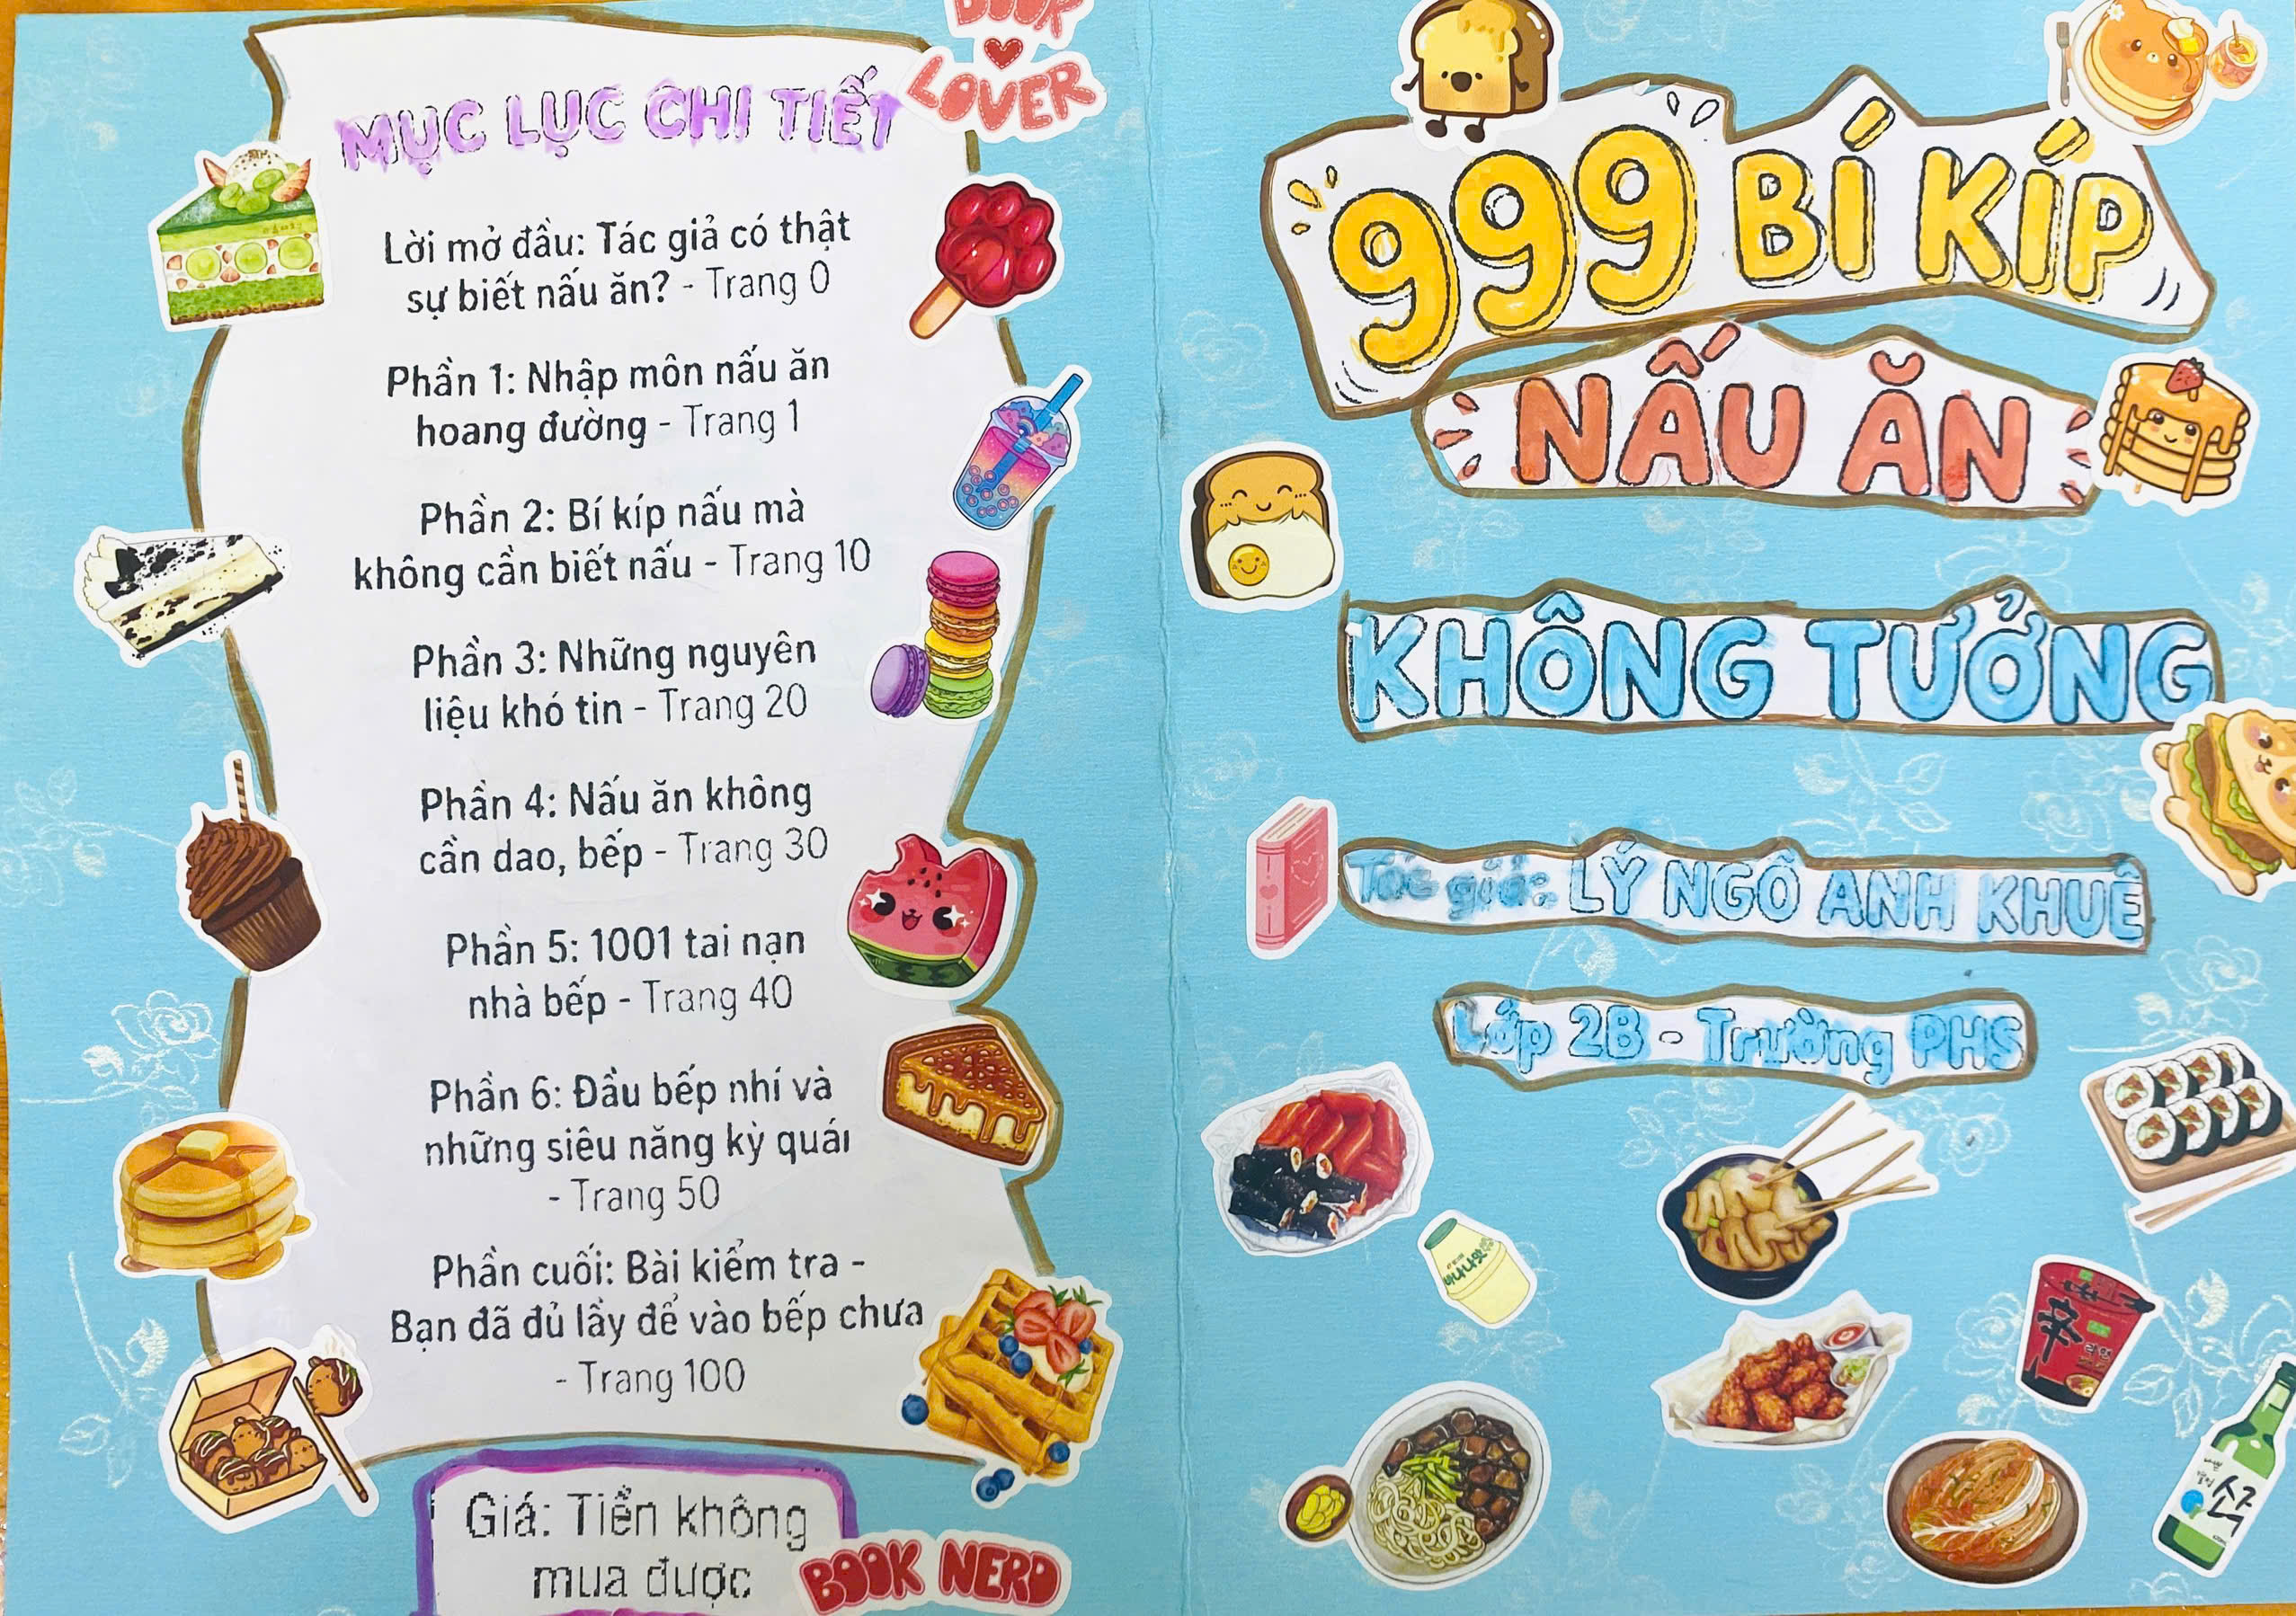 BOOK
LOVER
MỤC LỤC CHI TIẾT
Lời mở đầu: Tác giả có thật
sự biết nấu ăn? - Trang 0
Phần 1: Nhập môn nấu ăn
hoang đường - Trang 1
Phần 2: Bí kíp nấu mà
không cần biết nấu - Trang 10
Phần 3: Những nguyên
liệu khó tin - Trang 20
Phần 4: Nấu ăn không
cần dao, bếp - Trang 30
Phần 5: 1001 tai nạn
nhà bếp - Trang 40
Phần 6: Đầu bếp nhí và
những siêu năng kỳ quái
- Trang 50
Phần cuối: Bài kiểm tra -
Bạn đã đủ lầy để vào bếp chưa
- Trang 100
Giá: Tiền không
mua được
BOOK NERD
999 BÍ KÍP
NẤU ĂN
KHÔNG TƯỞNG
Tác giả: LÝ NGÔ ANH KHUÊ
Lớp 2B - Trường PHS
바나나맛
辛
라면